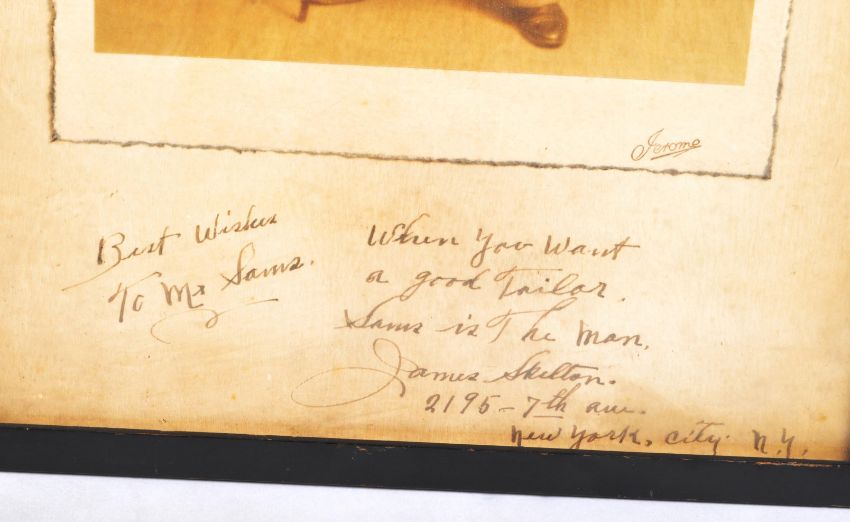 Jerome
Best Wishes
To Mr Sams.
When You Want
a good Tailor.
Sams is The Man.
James Skelton.
2195 - 7th ave.
New York, city. N.Y.